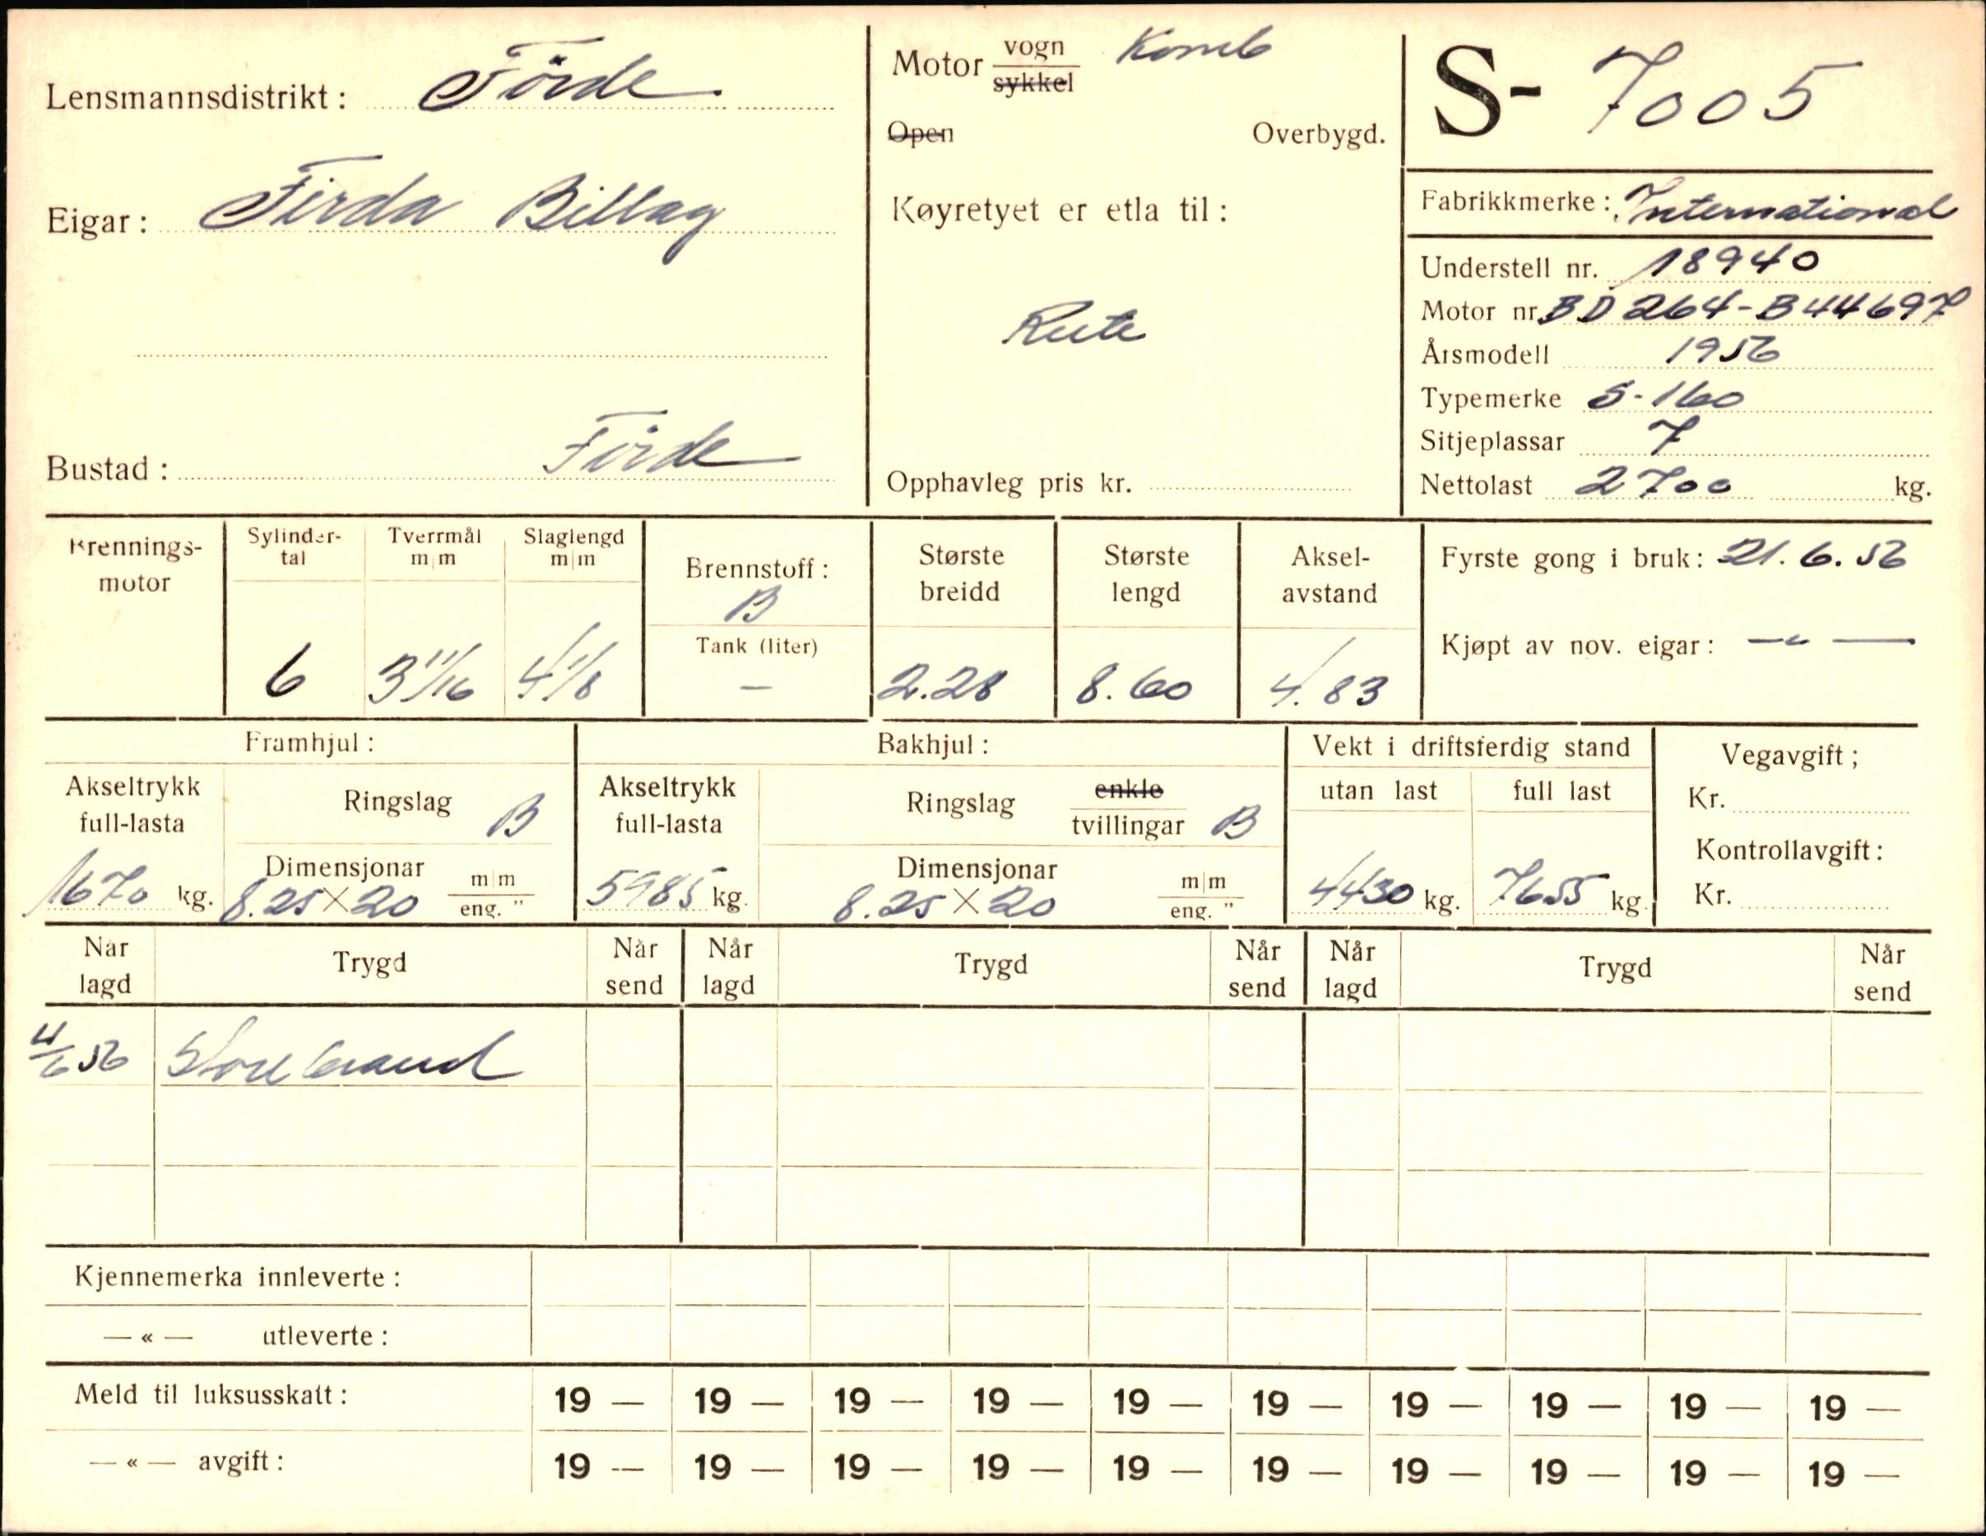 Lensmannsdistrikt: Förde
Eigar: Firda Billag
Bustad: Förde
Motor vogn Komb
sykkel
Open Overbygd.
Køyretyet er etla til:
Rute
Opphavleg pris kr.
S- 7005
Fabrikkmerke: International
Understell nr. 18940
Motor nr. BD 264-B44697
Årsmodell 1956
Typemerke S-160
Sitjeplassar 7
Nettolast 2700 kg.
Brennings-
motor
Sylinder-
tal
6
Tverrmål
m|m
3 11/16
Slaglengd
m|m
4 1/8
Brennstoff:
B
Tank (liter)
—
Største
breidd
2.28
Største
lengd
8.60
Aksel-
avstand
4.83
Fyrste gong i bruk: 21.6.56
Kjøpt av nov. eigar: — „ —
Framhjul:
Akseltrykk
full-lasta
1670 kg.
Ringslag B
Dimensjonar m|m
8.25 × 20 eng. "
Bakhjul:
Akseltrykk
full-lasta
5985 kg.
Ringslag enkle
tvillingar B
Dimensjonar m|m
8.25 × 20 eng. "
Vekt i driftsferdig stand
utan last full last
4430 kg. 7655 kg.
Vegavgift;
Kr.
Kontrollavgift:
Kr.
Når
lagd Trygd Når
send Når
lagd Trygd Når
send Når
lagd Trygd Når
send
4/6 56 Storebrand
Kjennemerka innleverte:
— « — utleverte:
Meld til luksusskatt: 19 — 19 — 19 — 19 — 19 — 19 — 19 — 19 — 19 — 19 —
— « — avgift: 19 — 19 — 19 — 19 — 19 — 19 — 19 — 19 — 19 — 19 —